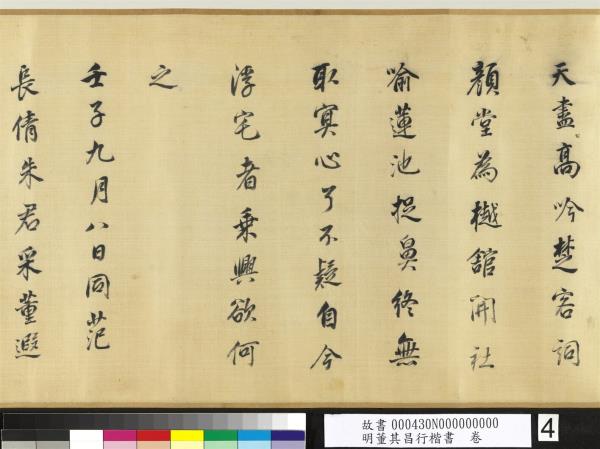 天盡高吟楚客詞
顏堂為樾館開社
喻蓮池捉鼻終無
取冥心了不疑自今
浮宅者乘興欲何
之
壬子九月八日同范
長倩朱君采董遐
故書 000430N000000000
明董其昌行楷書 卷
4